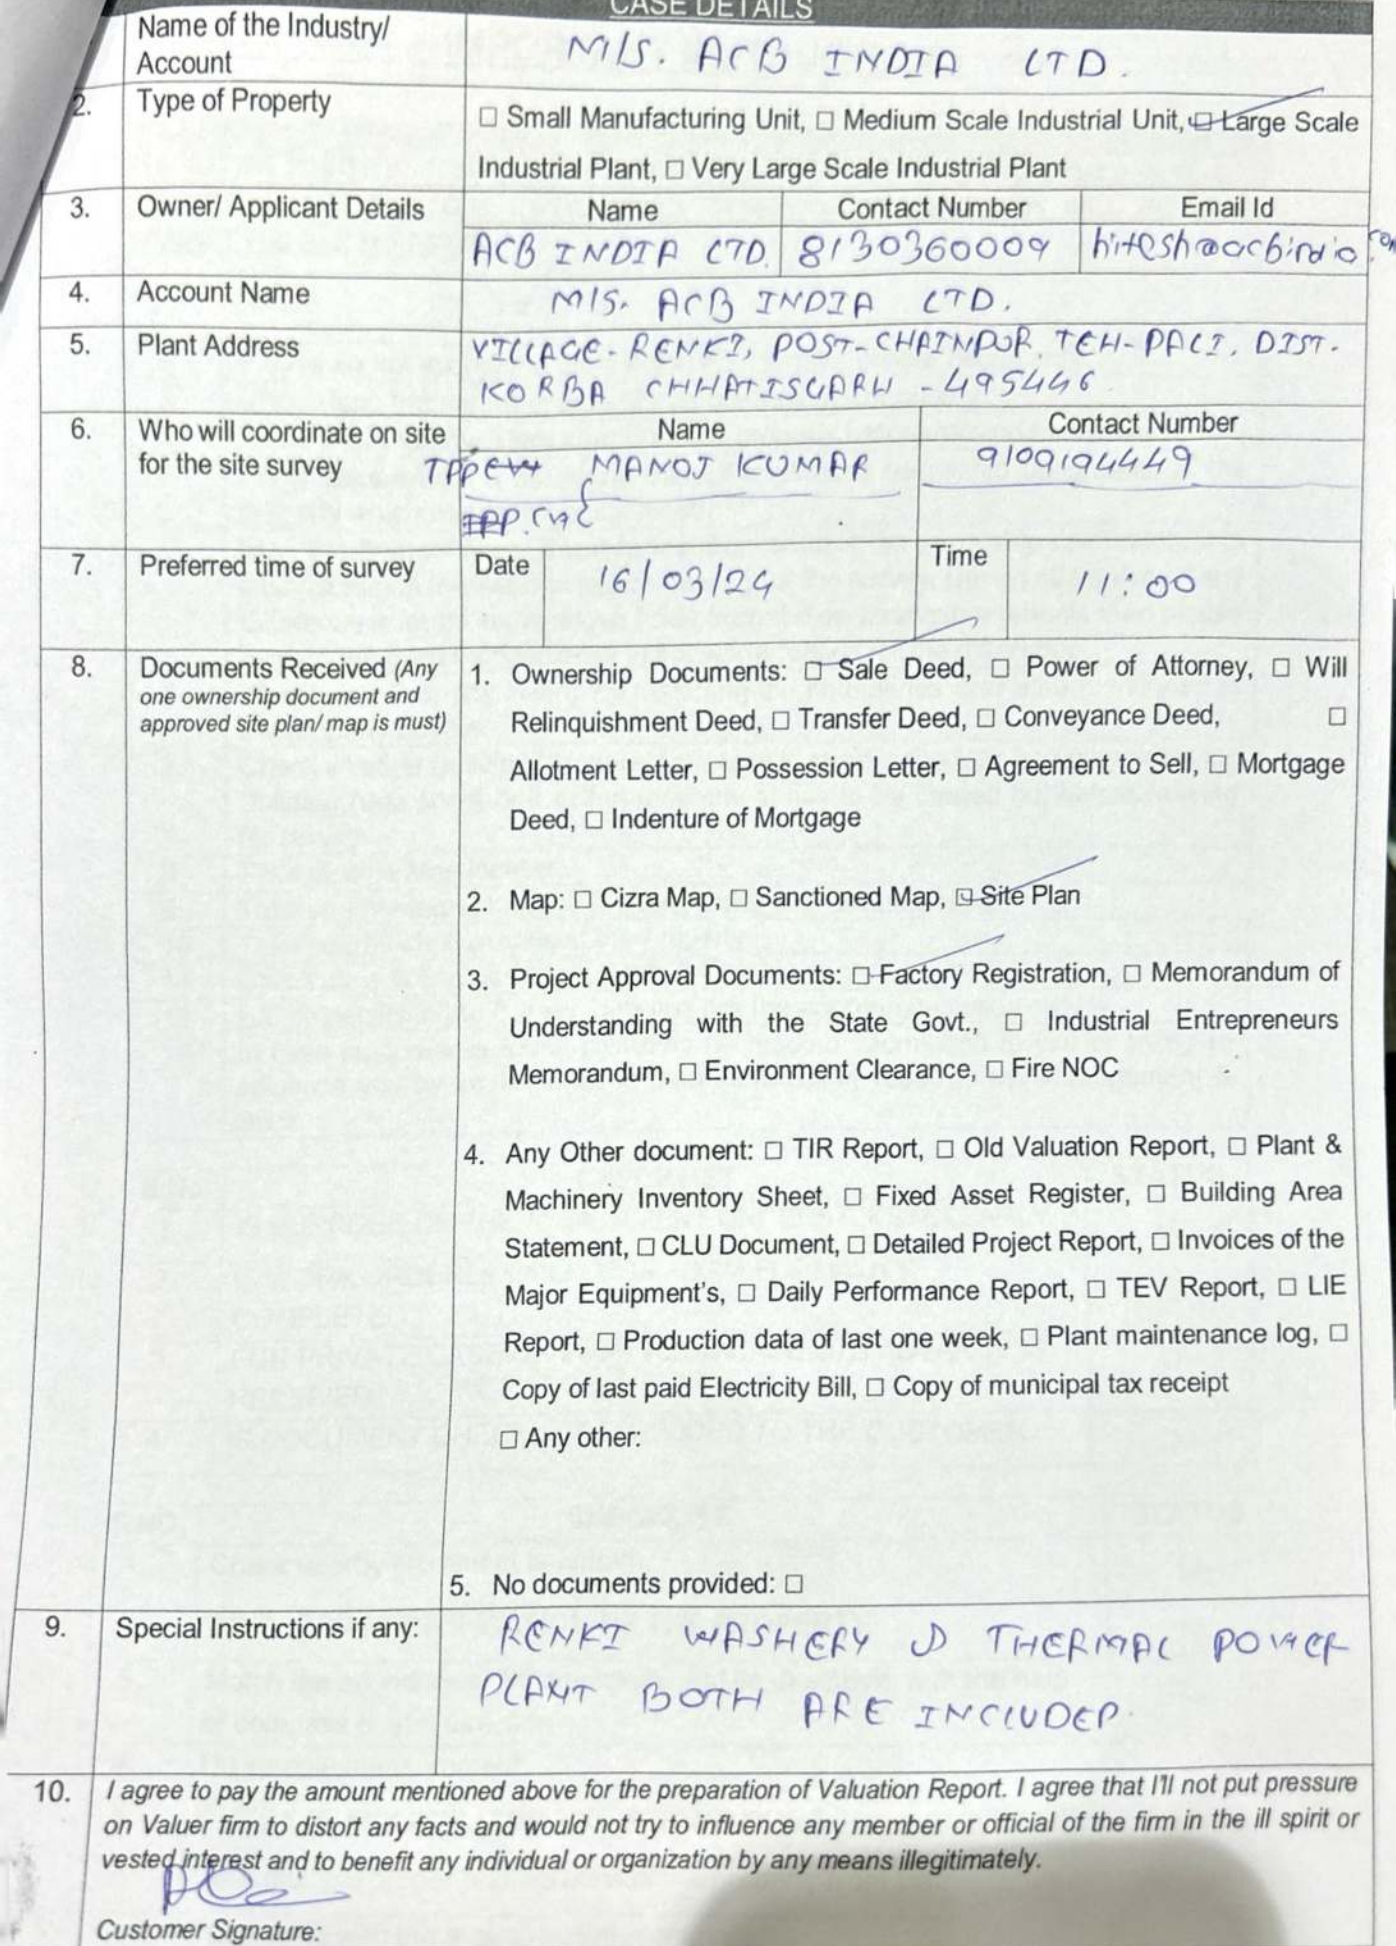 CASE DETAILS
Name of the Industry/
Account
M/S. ACB INDIA LTD.
2. Type of Property
□ Small Manufacturing Unit, □ Medium Scale Industrial Unit, ☑ Large Scale
Industrial Plant, □ Very Large Scale Industrial Plant
3. Owner/ Applicant Details
Name Contact Number Email Id
ACB INDIA LTD. 8130360009 hitesh@acbindia.com
4. Account Name M/S. ACB INDIA LTD.
5. Plant Address VILLAGE- RENKI, POST- CHAINPUR, TEH- PALI, DIST.
KORBA CHHATISGARH - 495446
6. Who will coordinate on site
for the site survey
Name Contact Number
TPP MANOJ KUMAR 9109194449
7. Preferred time of survey Date 16/03/24 Time 11:00
8. Documents Received (Any
one ownership document and
approved site plan/ map is must)
1. Ownership Documents: ☑ Sale Deed, □ Power of Attorney, □ Will
Relinquishment Deed, □ Transfer Deed, □ Conveyance Deed, □
Allotment Letter, □ Possession Letter, □ Agreement to Sell, □ Mortgage
Deed, □ Indenture of Mortgage
2. Map: □ Cizra Map, □ Sanctioned Map, ☑ Site Plan
3. Project Approval Documents: ☑ Factory Registration, □ Memorandum of
Understanding with the State Govt., □ Industrial Entrepreneurs
Memorandum, □ Environment Clearance, □ Fire NOC
4. Any Other document: □ TIR Report, □ Old Valuation Report, □ Plant &
Machinery Inventory Sheet, □ Fixed Asset Register, □ Building Area
Statement, □ CLU Document, □ Detailed Project Report, □ Invoices of the
Major Equipment's, □ Daily Performance Report, □ TEV Report, □ LIE
Report, □ Production data of last one week, □ Plant maintenance log, □
Copy of last paid Electricity Bill, □ Copy of municipal tax receipt
□ Any other:
5. No documents provided: □
9. Special Instructions if any:
RENKI WASHERY & THERMAL POWER
PLANT BOTH ARE INCLUDED.
10. I agree to pay the amount mentioned above for the preparation of Valuation Report. I agree that I'll not put pressure
on Valuer firm to distort any facts and would not try to influence any member or official of the firm in the ill spirit or
vested interest and to benefit any individual or organization by any means illegitimately.
Customer Signature: